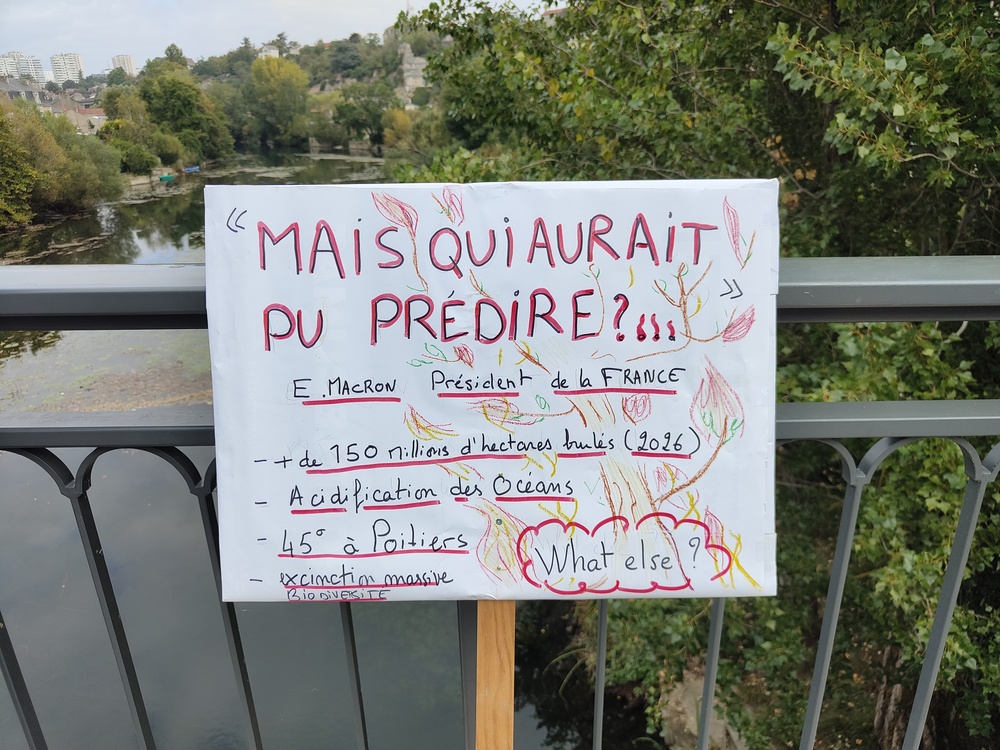 « MAIS QUI AURAIT
PU PRÉDIRE ?... »
E. MACRON Président de la FRANCE
- + de 150 Millions d'hectares brulés (2026)
- Acidification des Océans
- 45° à Poitiers
- excinction massive
BiODiVERSITE
What else ?